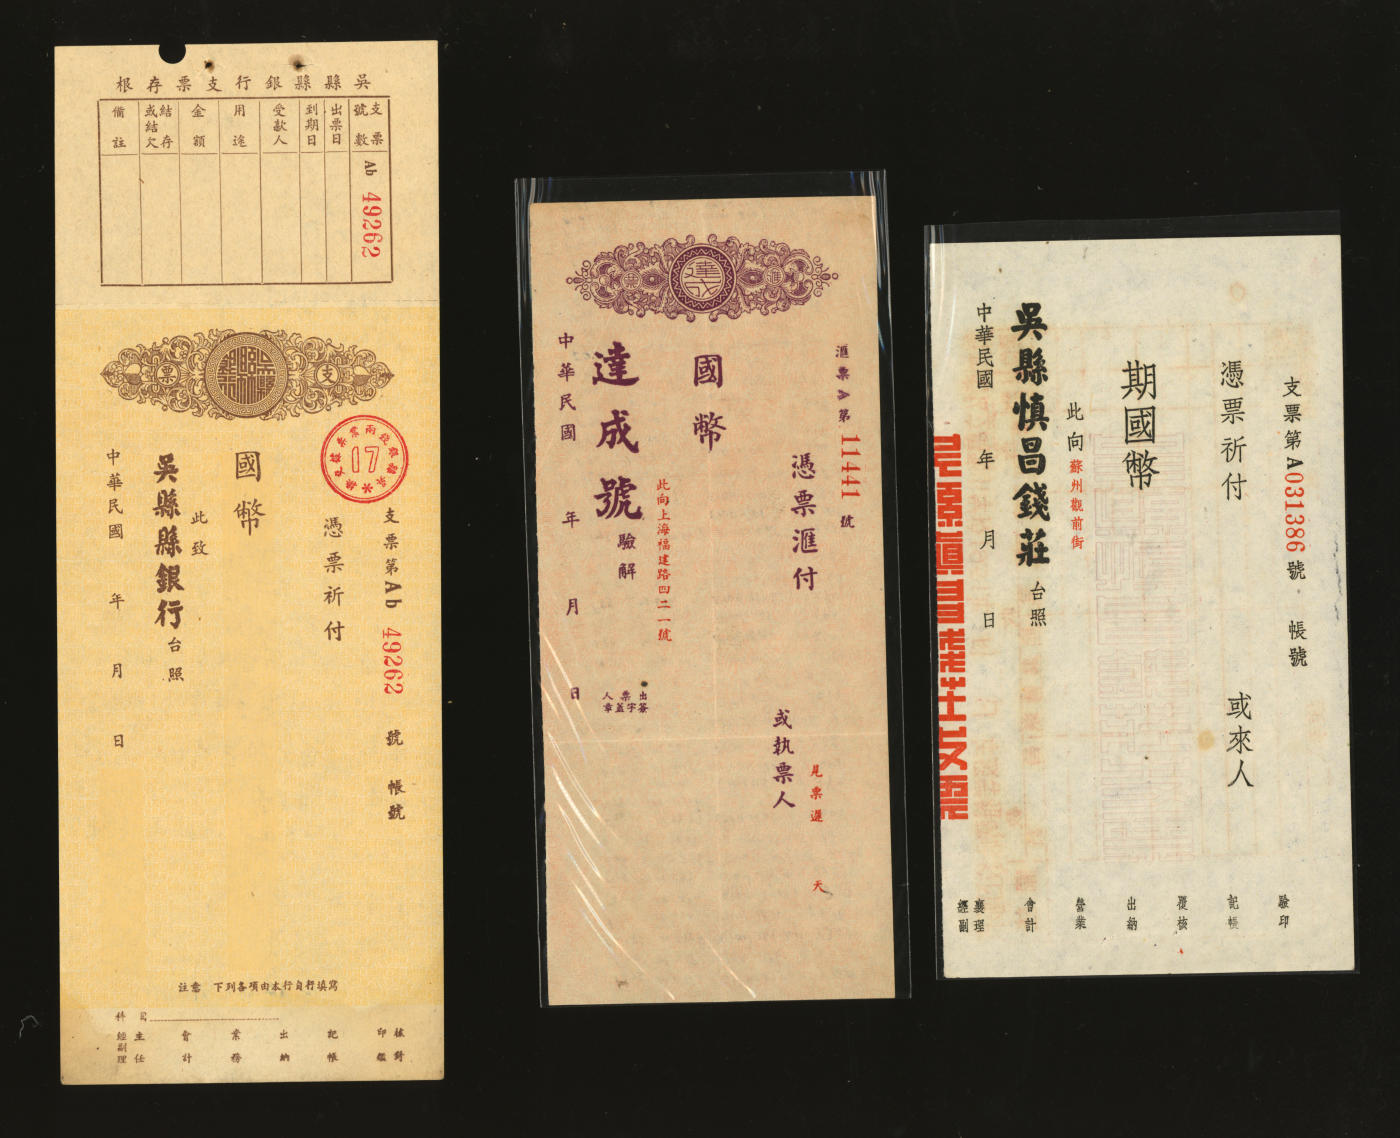 吳縣縣銀行支票存根
支票號數
出票日
到期日
受款人
用途
金額
結存或結欠
備註
Ab 49262
支
票
17
支票第Ab 49262 號 帳號
憑票祈付
國幣
此致
吳縣縣銀行台照
中華民國 年 月 日
注意 下列各項由本行自行填寫
科目
核對
印鑑
記帳
出納
業務
會計
主任
經副理
匯
達成
票
匯票A第11441號
憑票匯付
或執票人
見票遲 天
國幣
此向上海福建路四二一號
達成號驗解
出票人
簽字蓋章
中華民國 年 月 日
支票第A031386號 帳號
憑票祈付 或來人
期國幣
此向蘇州觀前街
吳縣慎昌錢莊台照
中華民國 年 月 日
驗印
記帳
覆核
出納
營業
會計
襄理
經副